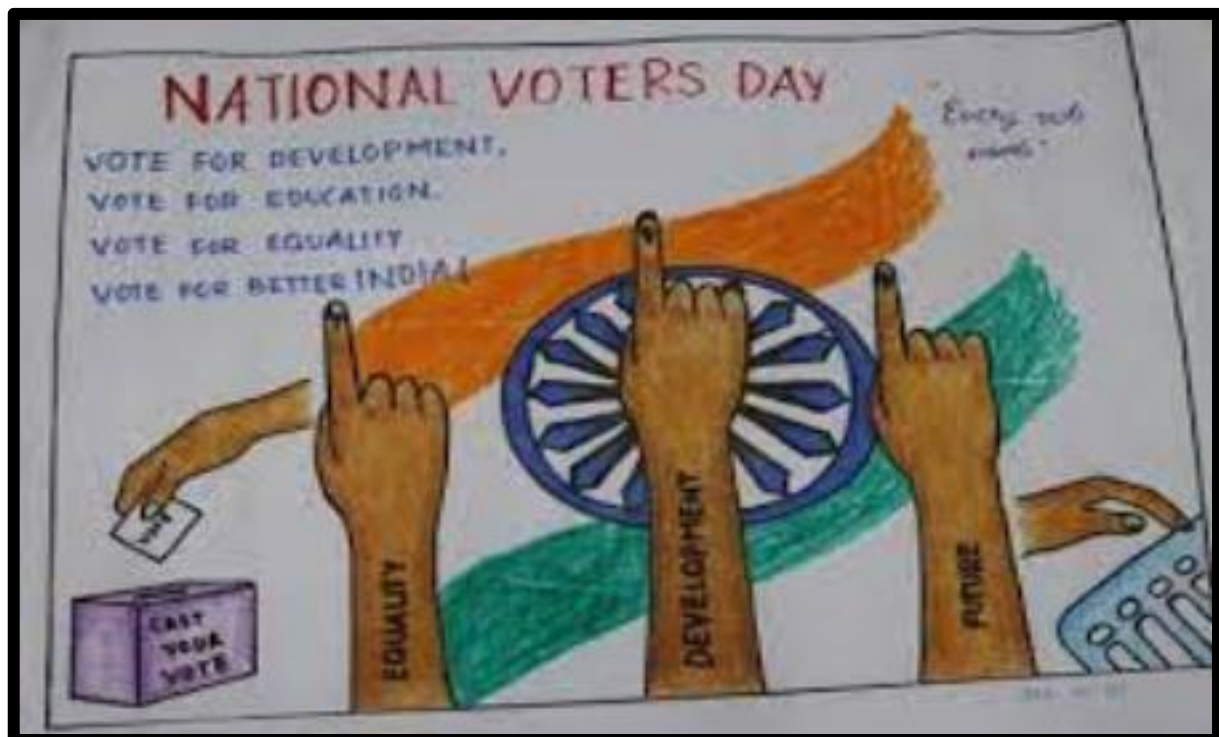 NATIONAL VOTERS DAY
"Every
VOTE FOR DEVELOPMENT.
VOTE FOR EDUCATION.
VOTE FOR EQUALITY
VOTE FOR BETTER INDIA!
VOTE
CAST
YOUR
VOTE
EQUALITY
DEVELOPMENT
FUTURE